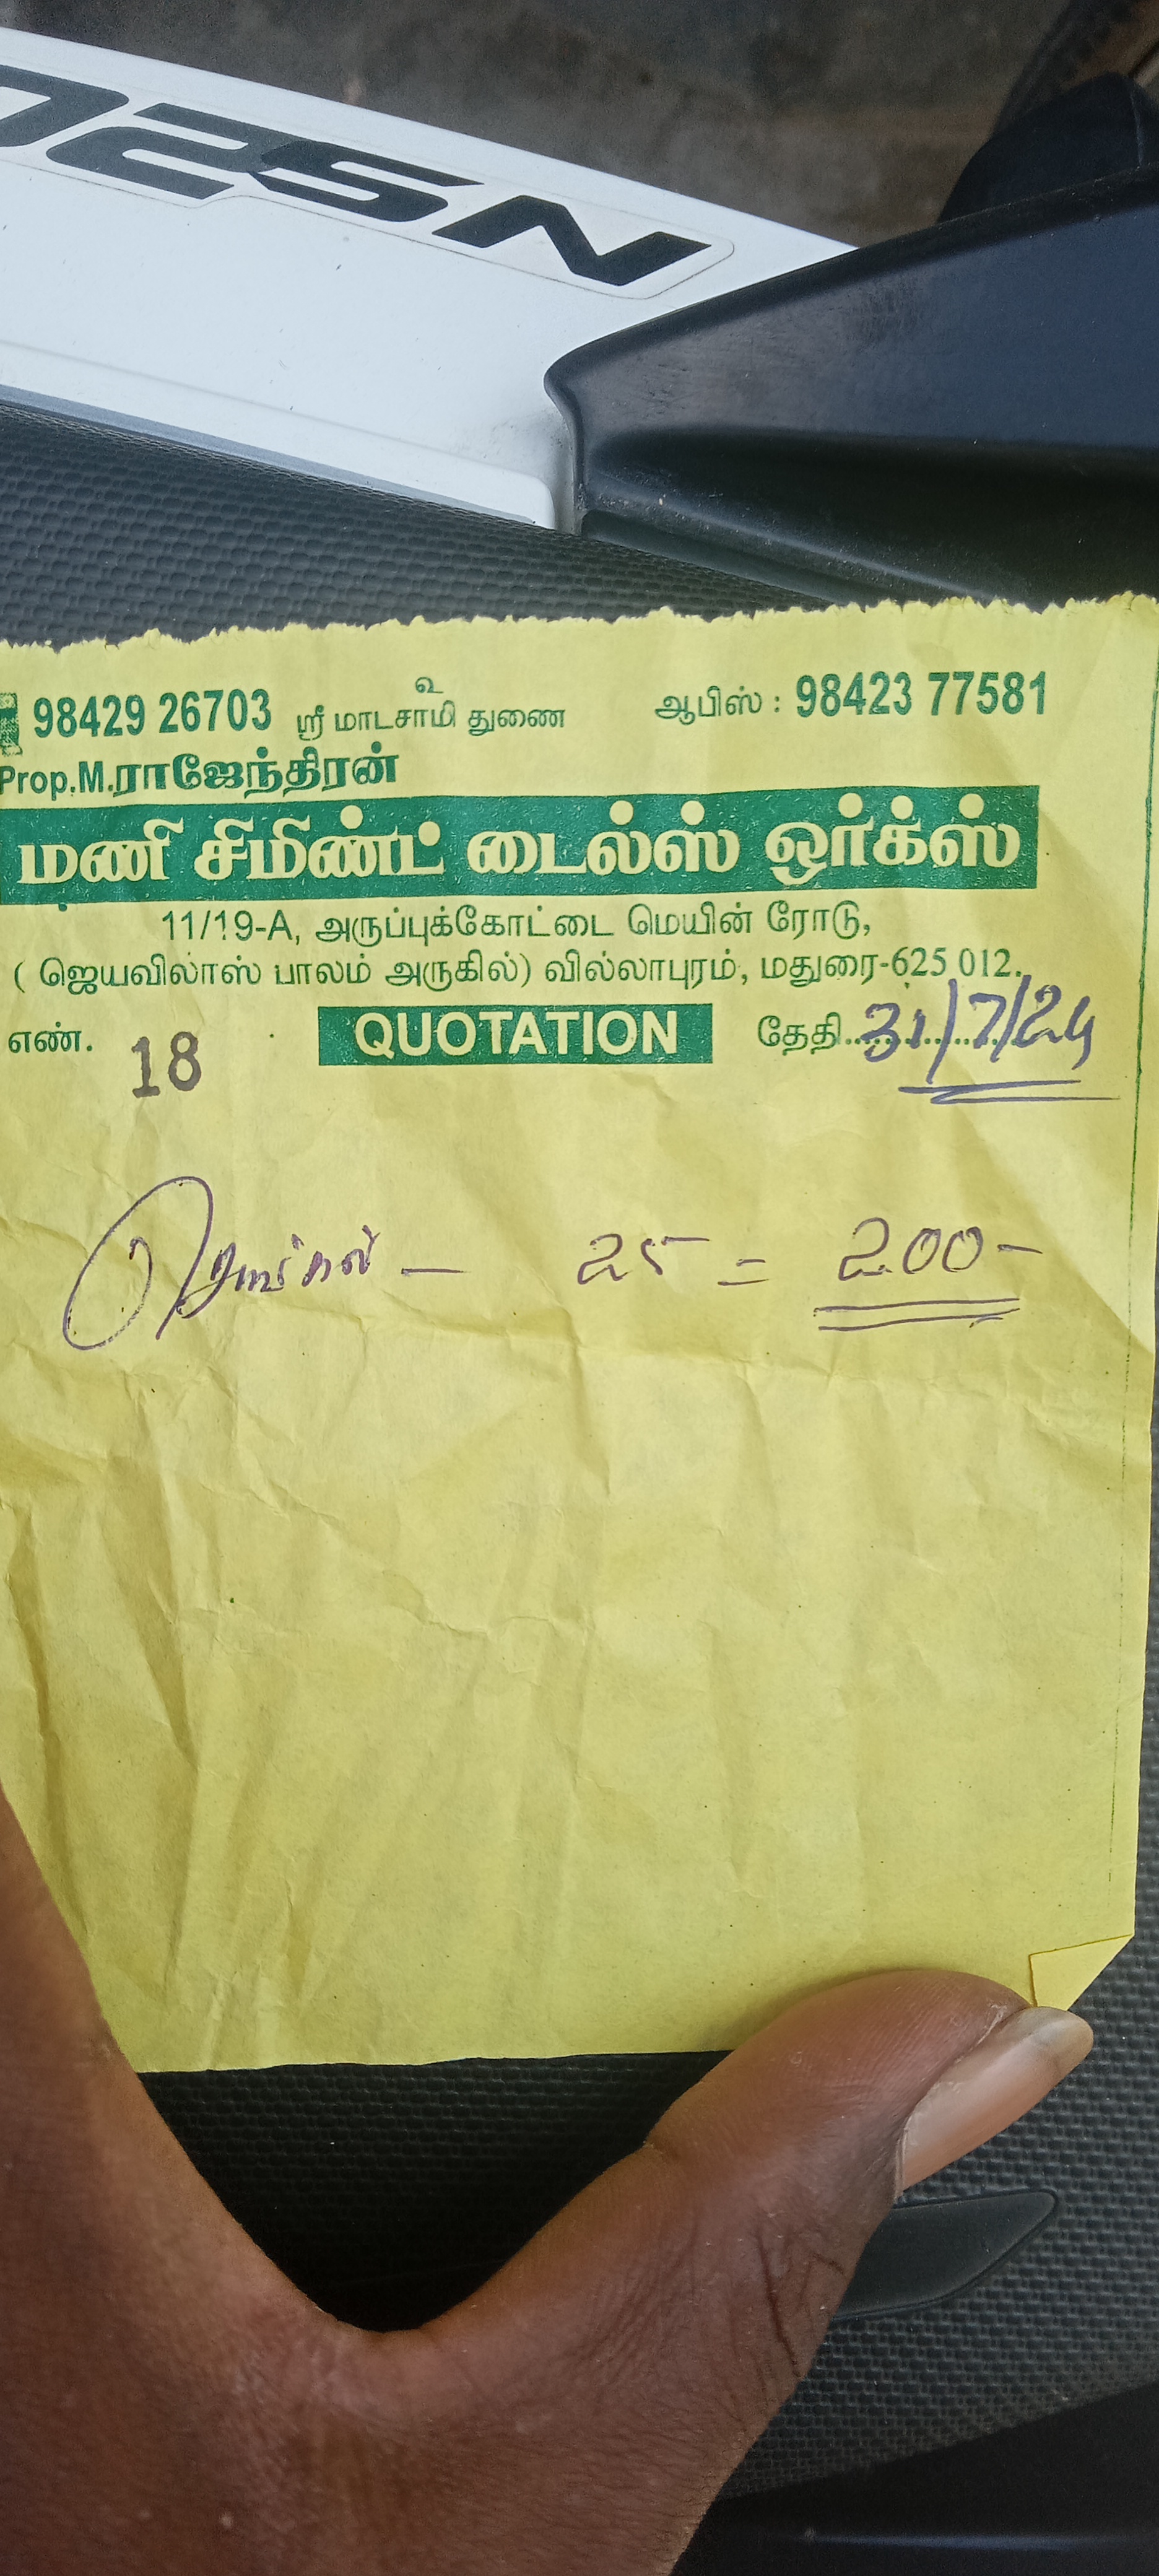 NS20
உ
98429 26703 ஸ்ரீ மாடசாமி துணை ஆபிஸ் : 98423 77581
Prop.M.ராஜேந்திரன்
மணி சிமிண்ட் டைல்ஸ் ஒர்க்ஸ்
11/19-A, அருப்புக்கோட்டை மெயின் ரோடு,
( ஜெயவிலாஸ் பாலம் அருகில்) வில்லாபுரம், மதுரை-625 012.
எண். 18 QUOTATION தேதி 31/7/24
செங்கல் — 25 = 200-